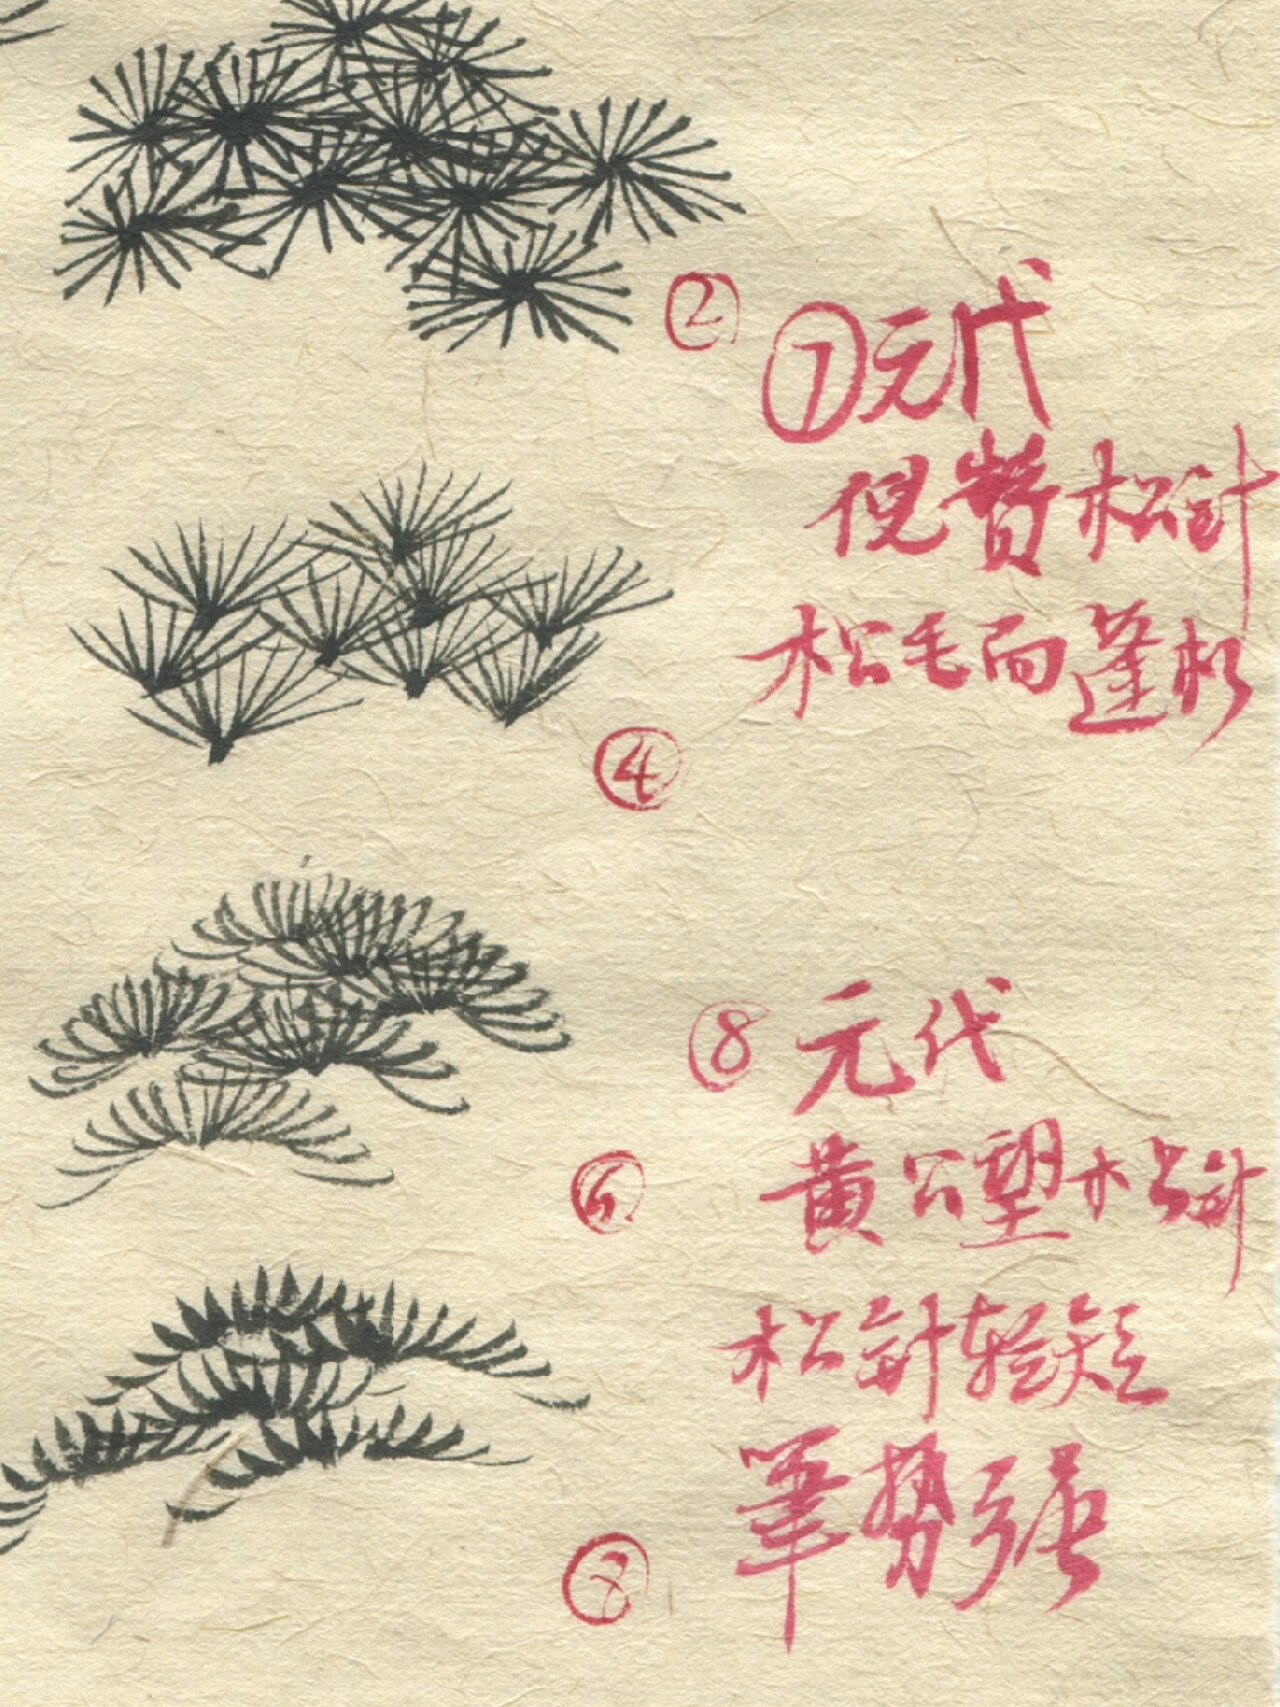 ②
⑦元代
倪瓒松針
松毛而蓬松
④
⑧元代
黄公望松針
⑥
松針轻短
筆势强
⑧